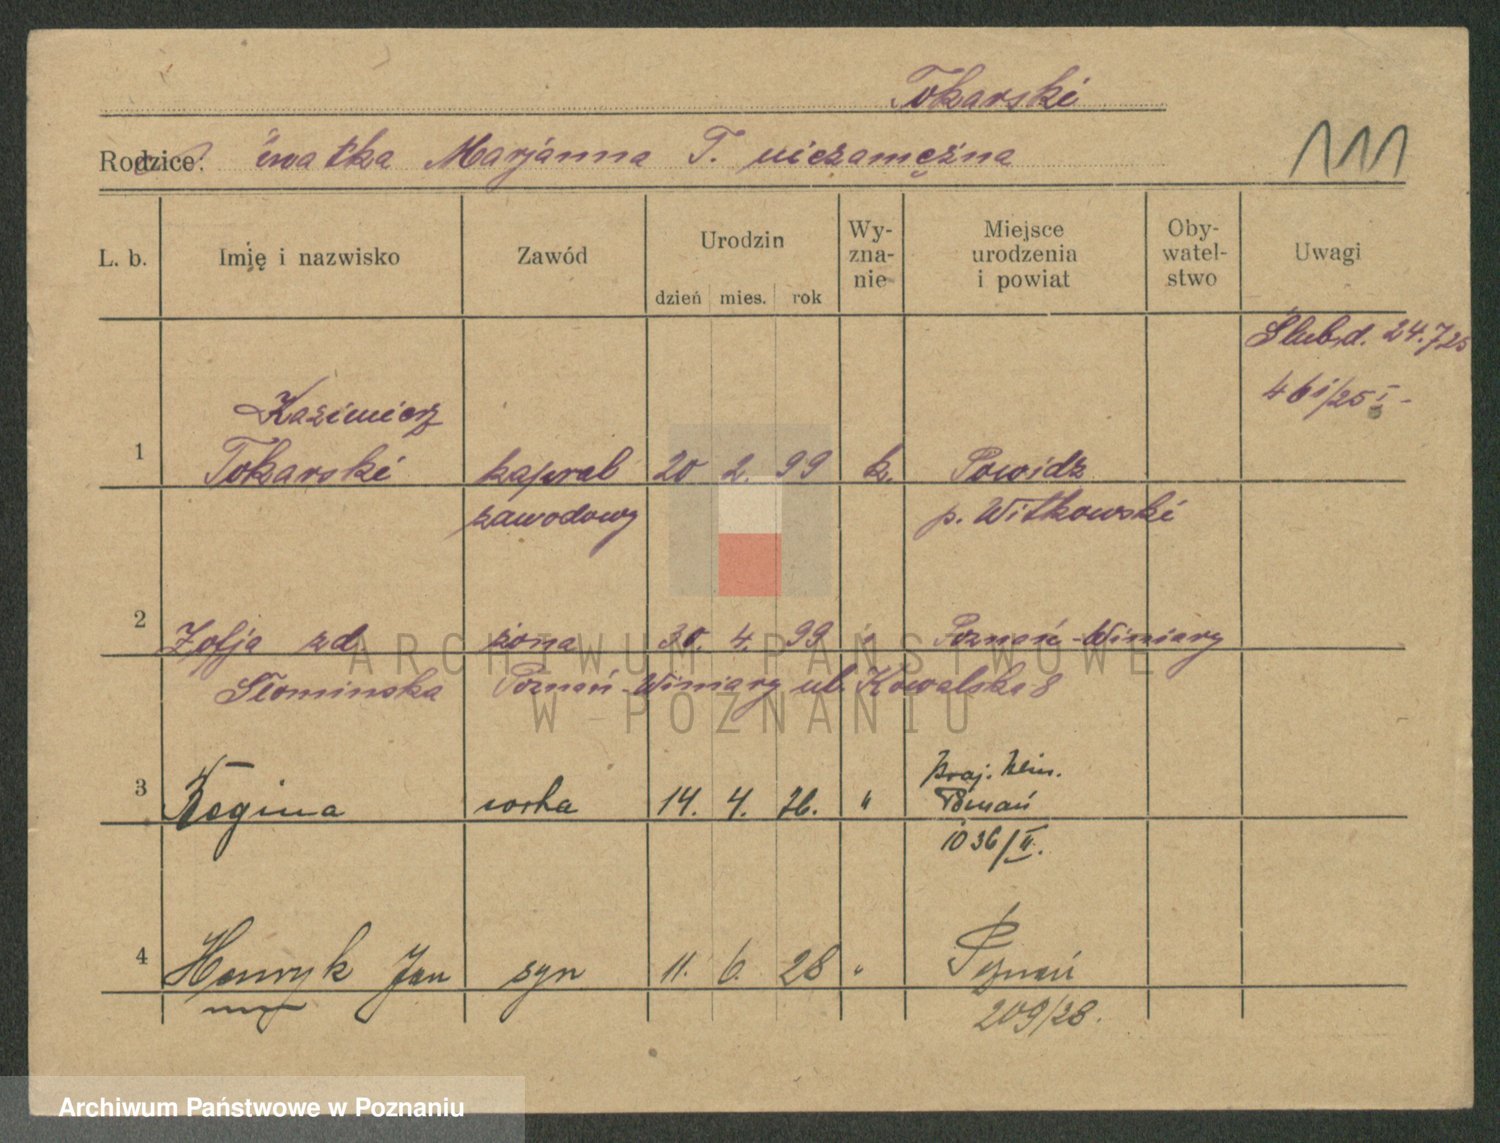 Tokarski
Rodzice: Marjanna T. niezamężna
111
L. b. Imię i nazwisko Zawód Urodzin dzień mies. rok Wy-zna-nie Miejsce urodzenia i powiat Oby-watel-stwo Uwagi
Ślub d. 24.7 25
461/25 I
Kazimierz
1 Tokarski kapral 20 2. 99 k. Powidz
zawodowy p. Witkowski
2 Zofja zd żona 30. 4. 99 " Poznań-Winiary
Słominska Poznań-Winiary ul. Kowalska 8
3 Regina corka 14. 4. 26. "
Poznań
1036/II.
4 Henryk Jan syn 11. 6. 28 " Poznań
209/28.
ARCHIWUM PAŃSTWOWE
W POZNANIU
Archiwum Państwowe w Poznaniu